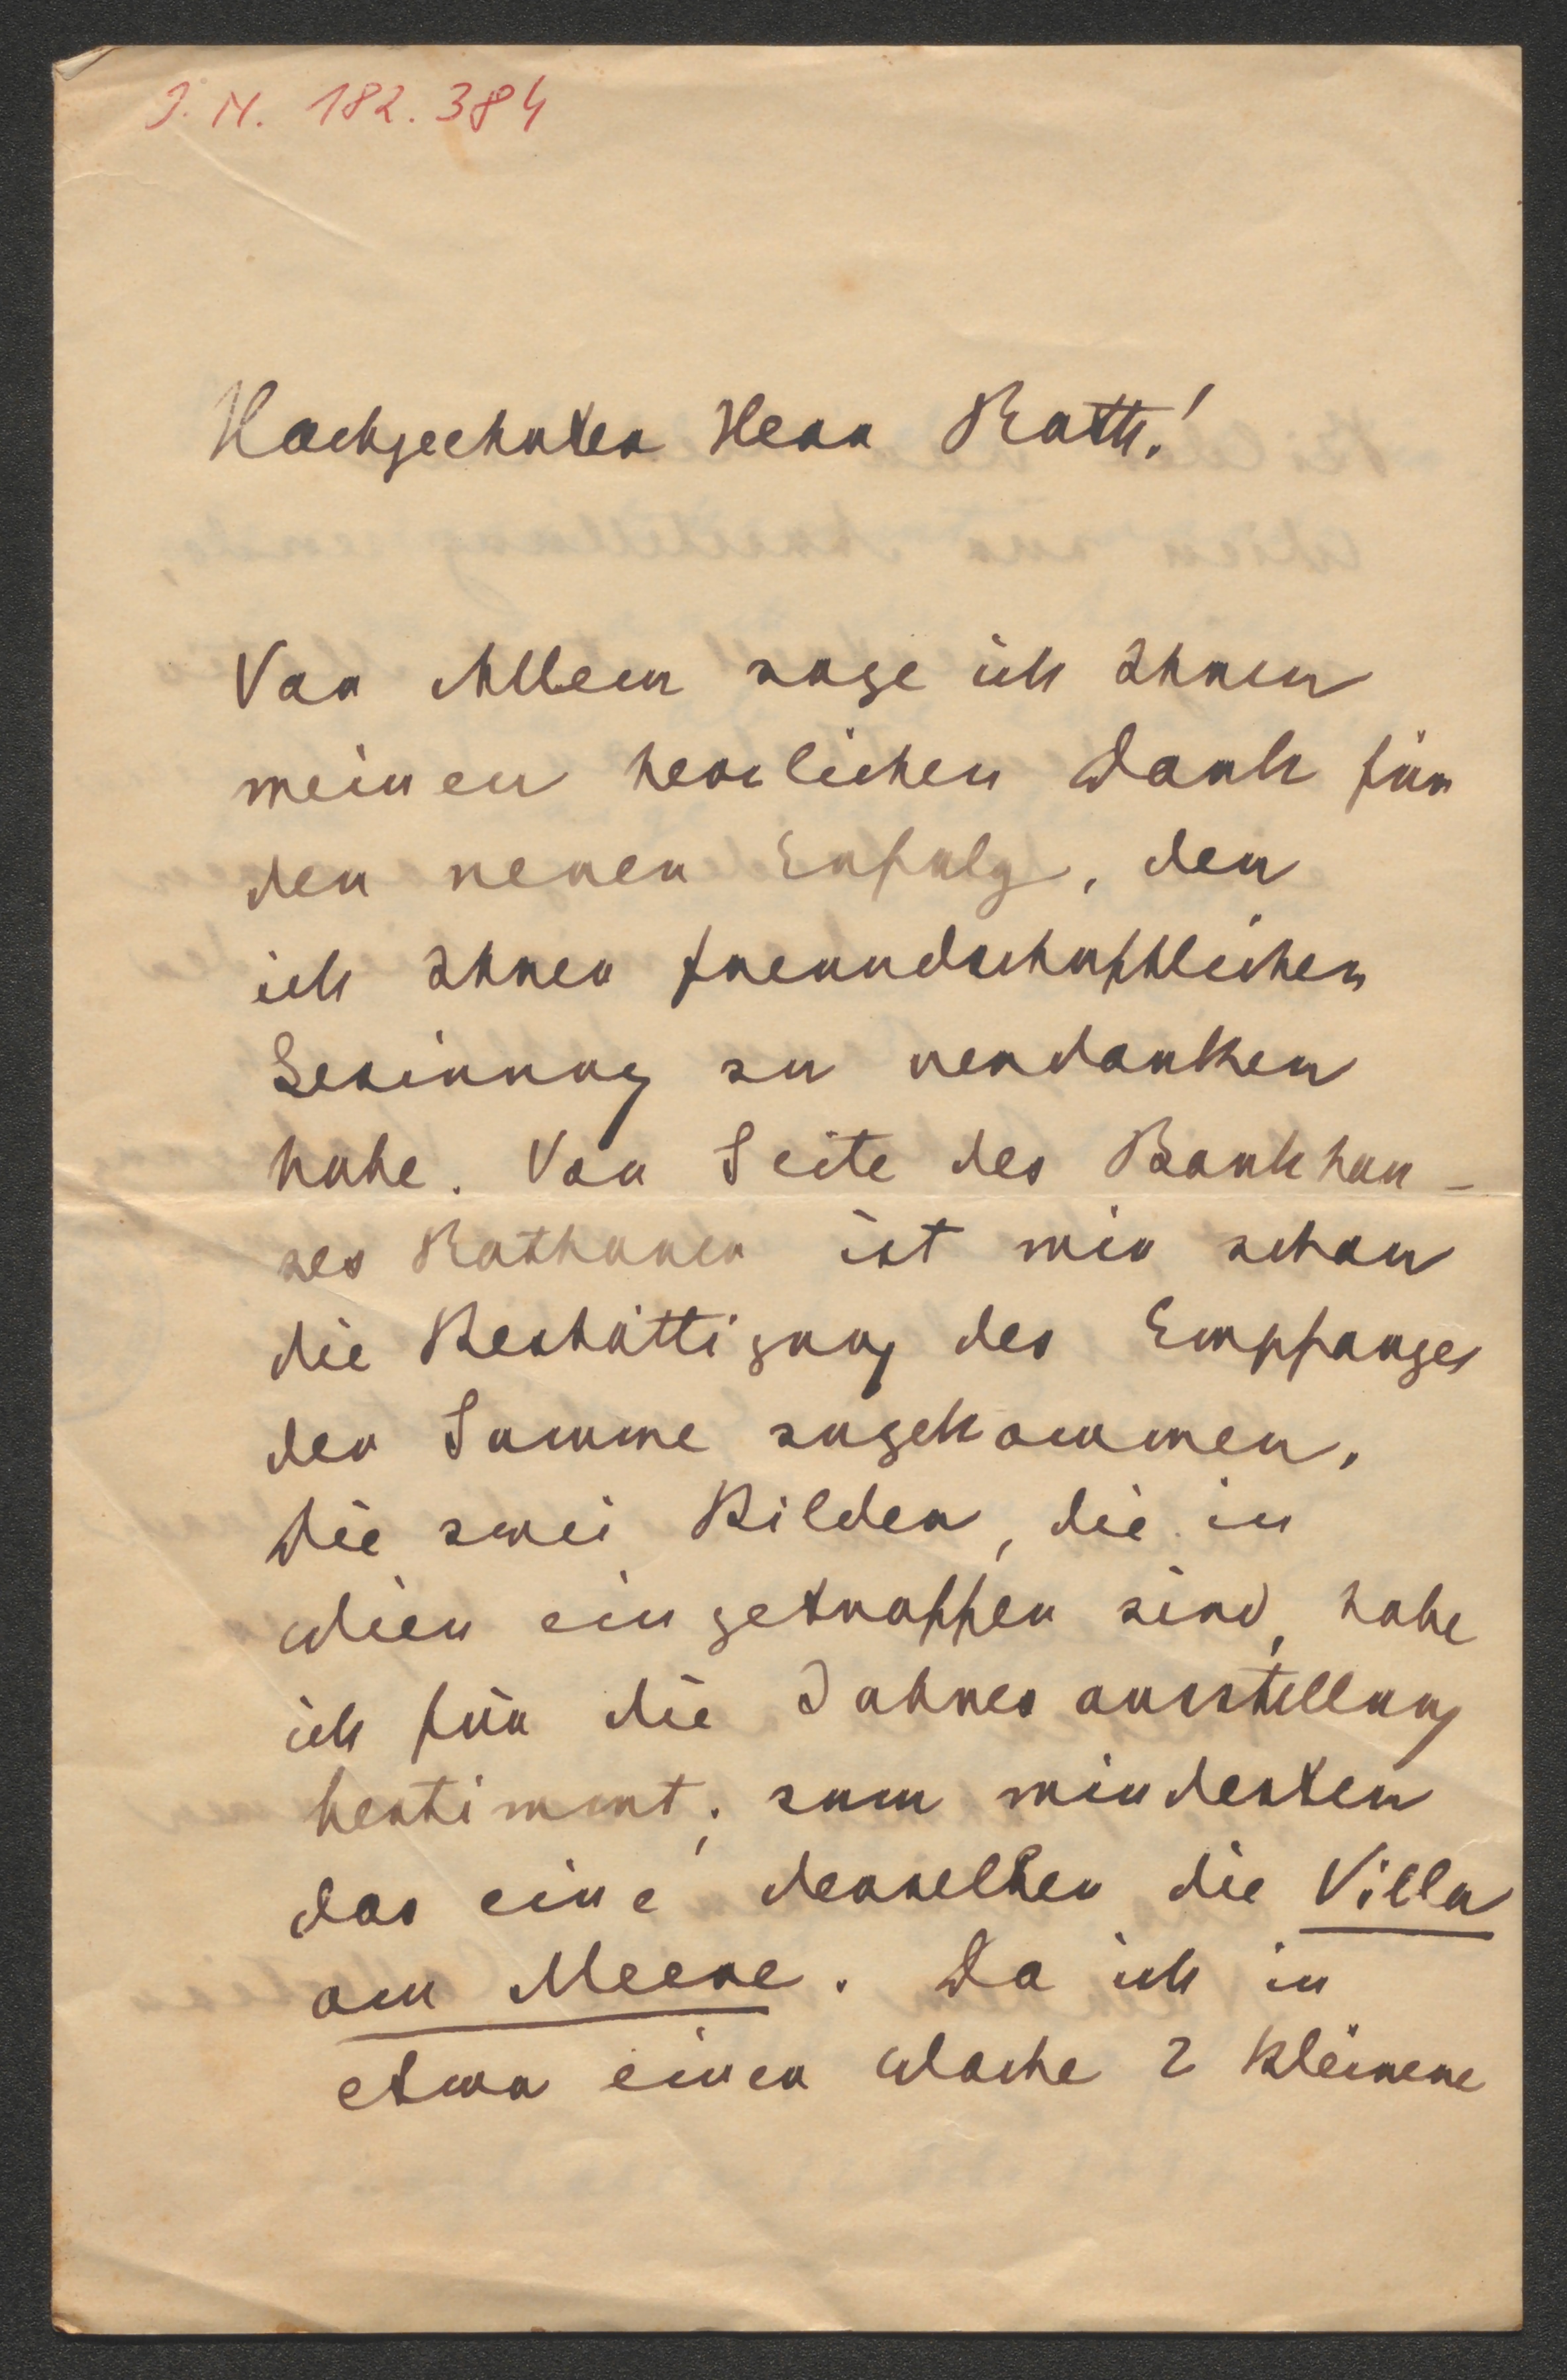 J. N. 182.384
Hochgeehrter Herr Rath!
Vor Allem sage ich Ihnen
meinen herzlichen Dank für
den neuen Erfolg, den
ich Ihrer freundschaftlichen
Gesinnung zu verdanken
habe. Von Seite des Bankhau-
ses ist mir schon
die Bestättigung des Empfanges
der Summe zugekommen.
Die zwei Bilder, die in
Wien eingetroffen sind, habe
ich für die Jahresausstellung
bestimmt; zum mindesten
das eine derselben die Villa
am Meere. Da ich in
etwa einer Woche 2 kleinere